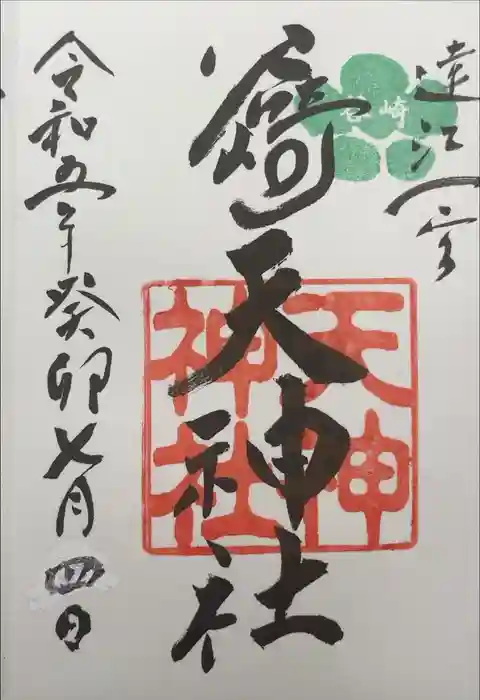 遠江一宮
谷崎天神社
天神
神社
令和五年癸卯七月四日